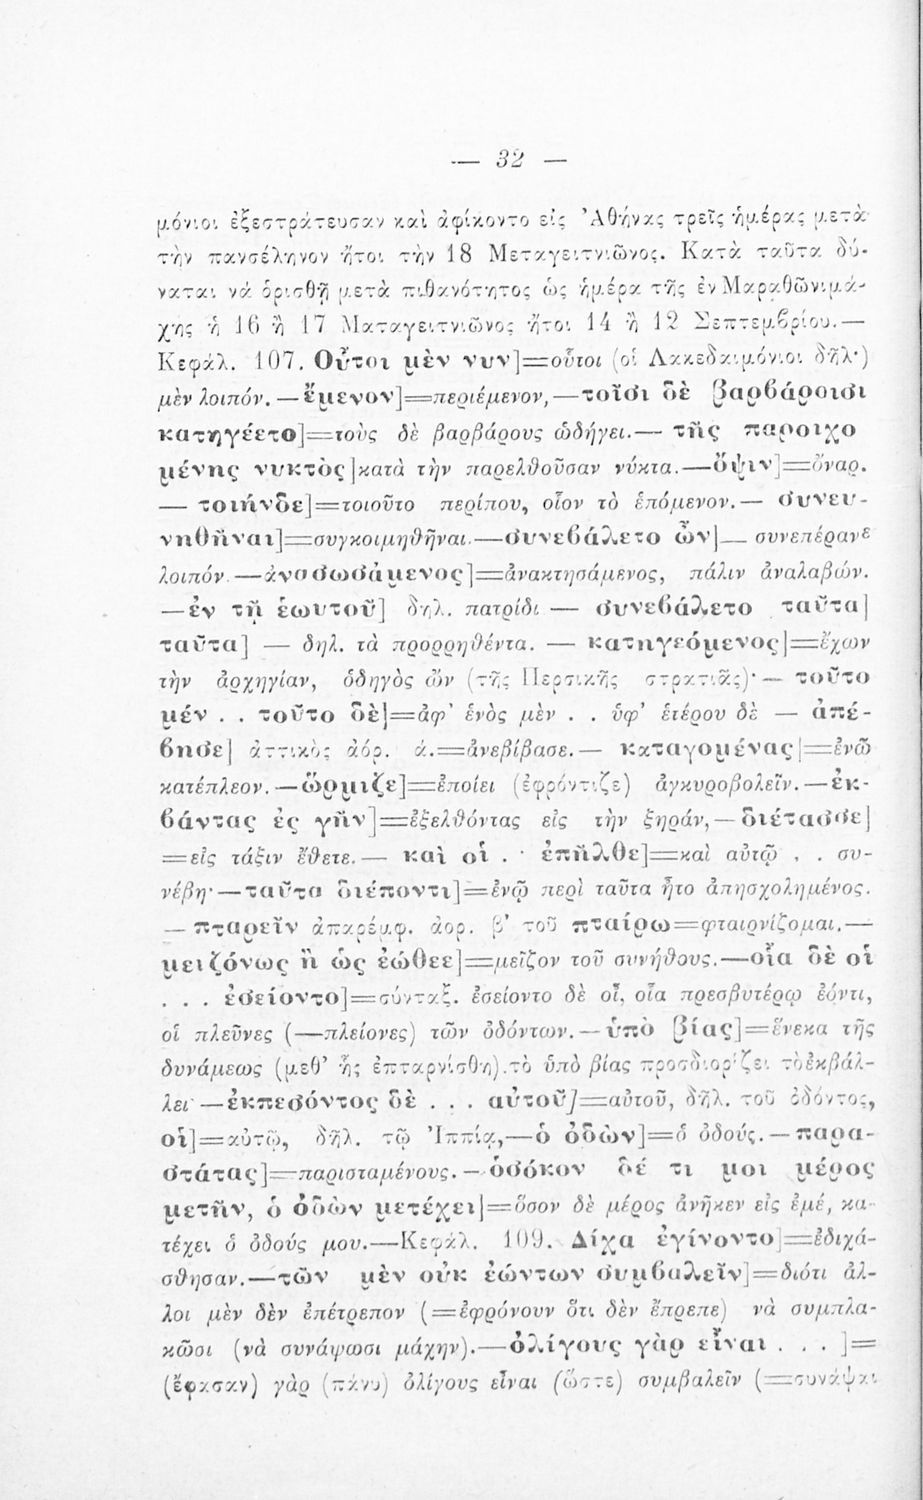 — 32 —
μόνιοι ἐξεστράτευσαν καὶ ἀφίκοντο εἰς Ἀθήνας τρεῖς ἡμέρας μετὰ
τὴν πανσέληνον ἤτοι τὴν 18 Μεταγειτνιῶνος. Κατὰ ταῦτα δύ-
ναται νά ὁρισθῇ μετὰ πιθανότητος ὡς ἡμέρα τῆς ἐν Μαραθῶνι μά-
χης ἡ 16 ἢ 17 Ματαγειτνιῶνος ἤτοι 14 ἢ 12 Σεπτεμβρίου.—
Κεφάλ. 107. Οὗτοι μὲν νυν]=οὗτοι (οἱ Λακεδαιμόνιοι δῆλ·)
μὲν λοιπόν.—ἔμενον]=περιέμενον,—τοῖσι δὲ βαρβάροισι
κατηγέετο]=τοὺς δὲ βαρβάρους ὡδήγει.— τῆς παροιχο
μένης νυκτὸς]κατὰ τὴν παρελθοῦσαν νύκτα.—ὄψιν]=ὄναρ.
— τοιήνδε]=τοιοῦτο περίπου, οἷον τὸ ἑπόμενον.— συνευ-
νηθῆναι]=συγκοιμηθῆναι.—συνεβάλετο ὦν]— συνεπέρανε
λοιπόν.—ἀνασωσάμενος]=ἀνακτησάμενος, πάλιν ἀναλαβών.
—ἐν τῇ ἑωυτοῦ] δηλ. πατρίδι — συνεβάλετο ταῦτα]
ταῦτα] — δηλ. τὰ προρρηθέντα. — κατηγεόμενος]=ἔχων
τὴν ἀρχηγίαν, ὁδηγὸς ὤν (τῆς Περσικῆς στρατιᾶς)·— τοῦτο
μέν . . τοῦτο δὲ]=ἀφ' ἑνὸς μὲν . . ὑφ' ἑτέρου δὲ — ἀπέ-
βησε] ἀττικὸς ἀόρ. ά.=ἀνεβίβασε.— καταγομένας]=ἐνῶ
κατέπλεον.—ὥρμιζε]=ἐποίει (ἐφρόντιζε) ἀγκυροβολεῖν.—ἐκ-
βάντας ἐς γῆν]=ἐξελθόντας εἰς τὴν ξηράν,—διέτασσε]
=εἰς τάξιν ἔθετε.— καὶ οἱ . · ἐπῆλθε]=καὶ αὐτῷ , . συ-
νέβη·—ταῦτα διέποντι]=ἐνῷ περὶ ταῦτα ἦτο ἀπησχολημένος.
— πταρεῖν ἀπαρέμφ. ἀορ. β' τοῦ πταίρω=φταιρνίζομαι.—
μειζόνως ἢ ὡς ἐώθεε]=μεῖζον τοῦ συνήθους.—οἷα δὲ οἱ
. . . ἐσείοντο]=σύνταξ. ἐσείοντο δὲ οἷ, οἷα πρεσβυτέρῳ ἐόντι,
οἱ πλεῦνες (—πλείονες) τῶν ὀδόντων.—ὑπὸ βίας]=ἕνεκα τῆς
δυνάμεως (μεθ' ἧς ἐπταρνίσθη).τὸ ὑπὸ βίας προσδιορίζει τὸ ἐκβάλ-
λει·—ἐκπεσόντος δὲ . . . αὐτοῦ]=αὐτοῦ, δῆλ. τοῦ ὀδόντος,
οἱ]=αὐτῷ, δῆλ. τῷ Ἱππίᾳ,—ὁ ὀδὼν]=ὁ ὀδούς.—παρα-
στάτας]=παρισταμένους.—ὁσόκον δέ τι μοι μέρος
μετῆν, ὁ ὀδὼν μετέχει]=ὅσον δὲ μέρος ἀνῆκεν εἰς ἐμέ, κα-
τέχει ὁ ὀδούς μου.—Κεφάλ. 109. Δίχα ἐγίνοντο]=ἐδιχά-
σθησαν.—τῶν μὲν οὐκ ἐώντων συμβαλεῖν]=διότι ἄλ-
λοι μὲν δὲν ἐπέτρεπον (=ἐφρόνουν ὅτι δὲν ἔπρεπε) νὰ συμπλα-
κῶσι (νὰ συνάψωσι μάχην).—ὀλίγους γὰρ εἶναι . . . ]=
(ἔφασαν) γὰρ (πάνυ) ὀλίγους εἶναι (ὥστε) συμβαλεῖν (=συνάψαι